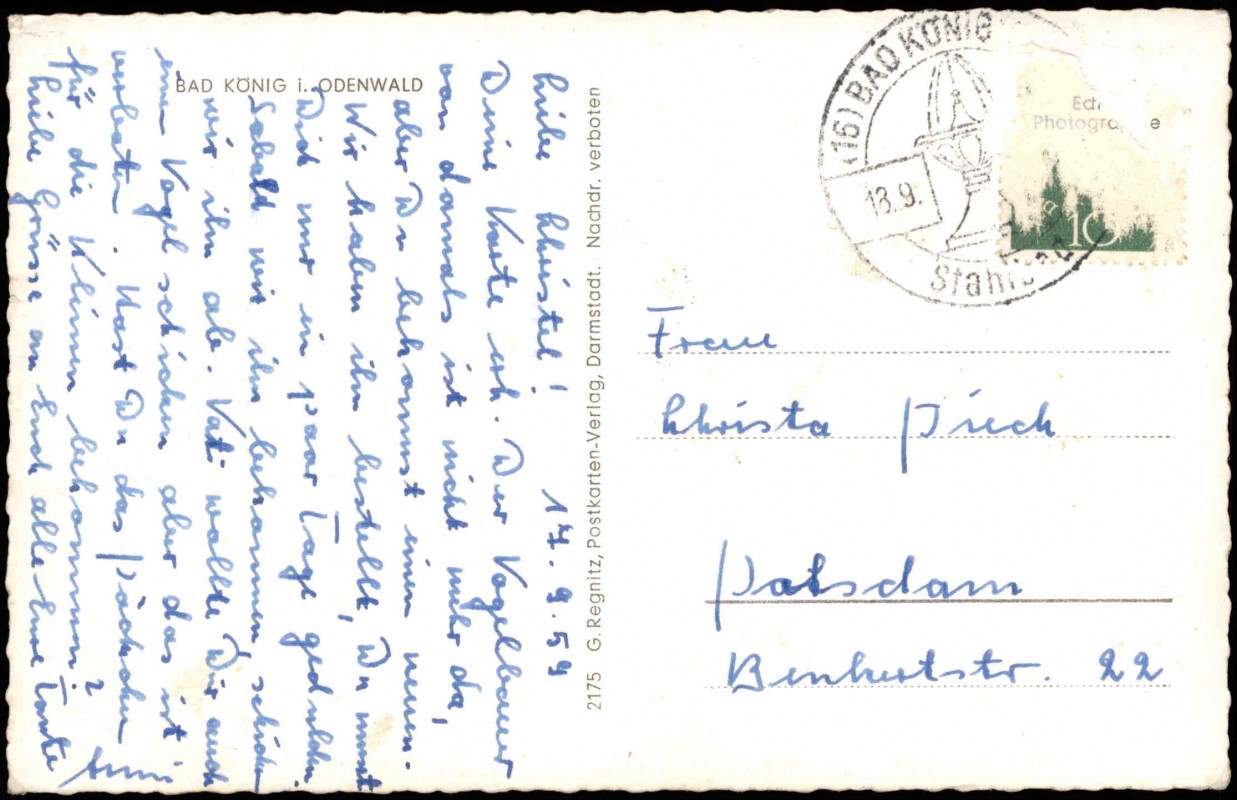 BAD KÖNIG i. ODENWALD
Liebe Christel! 17.9.59
Deine Karte erh. Der Vogelbauer
von damals ist nicht mehr da,
aber Du bekommst einen neuen.
Wir haben ihn bestellt, Du musst
Dich nur ein paar Tage gedulden.
Sobald wir ihn bekommen, schicken
wir ihn ab. Vati wollte Dir auch
einen Vogel schicken aber das ist
verboten. Hast Du das Päckchen
für die Kleinen bekommen?
Liebe Grüsse an Euch alle Eure Tante
Anni
2175 G. Regnitz, Postkarten-Verlag, Darmstadt. Nachdr. verboten
(16) BAD KÖNIG
13.9.
Stahlbad
Photogra e
10
Frau
Christa
Potsdam
Benkertstr. 22